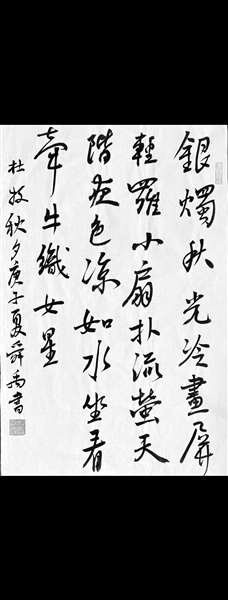 銀燭秋光冷畫屏
輕羅小扇扑流螢天
階夜色涼如水坐看
牽牛織女星
杜牧秋夕庚子夏舜禹書